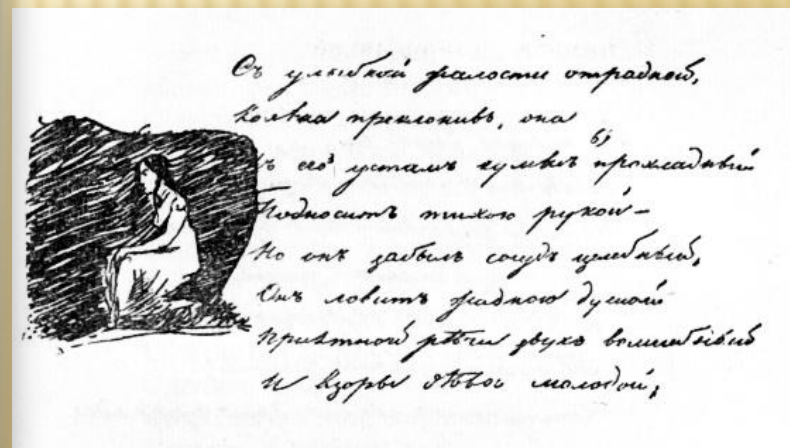 Съ улыбкой жалости отрадной,
Колѣна преклонивъ, она
Къ его устамъ кумысъ прохладный
б)
Подноситъ тихою рукой –
Но онъ забылъ сосудъ целебный,
Онъ ловитъ жадною душой
Приятной рѣчи звукъ волшебный
И взоры дѣвы молодой,